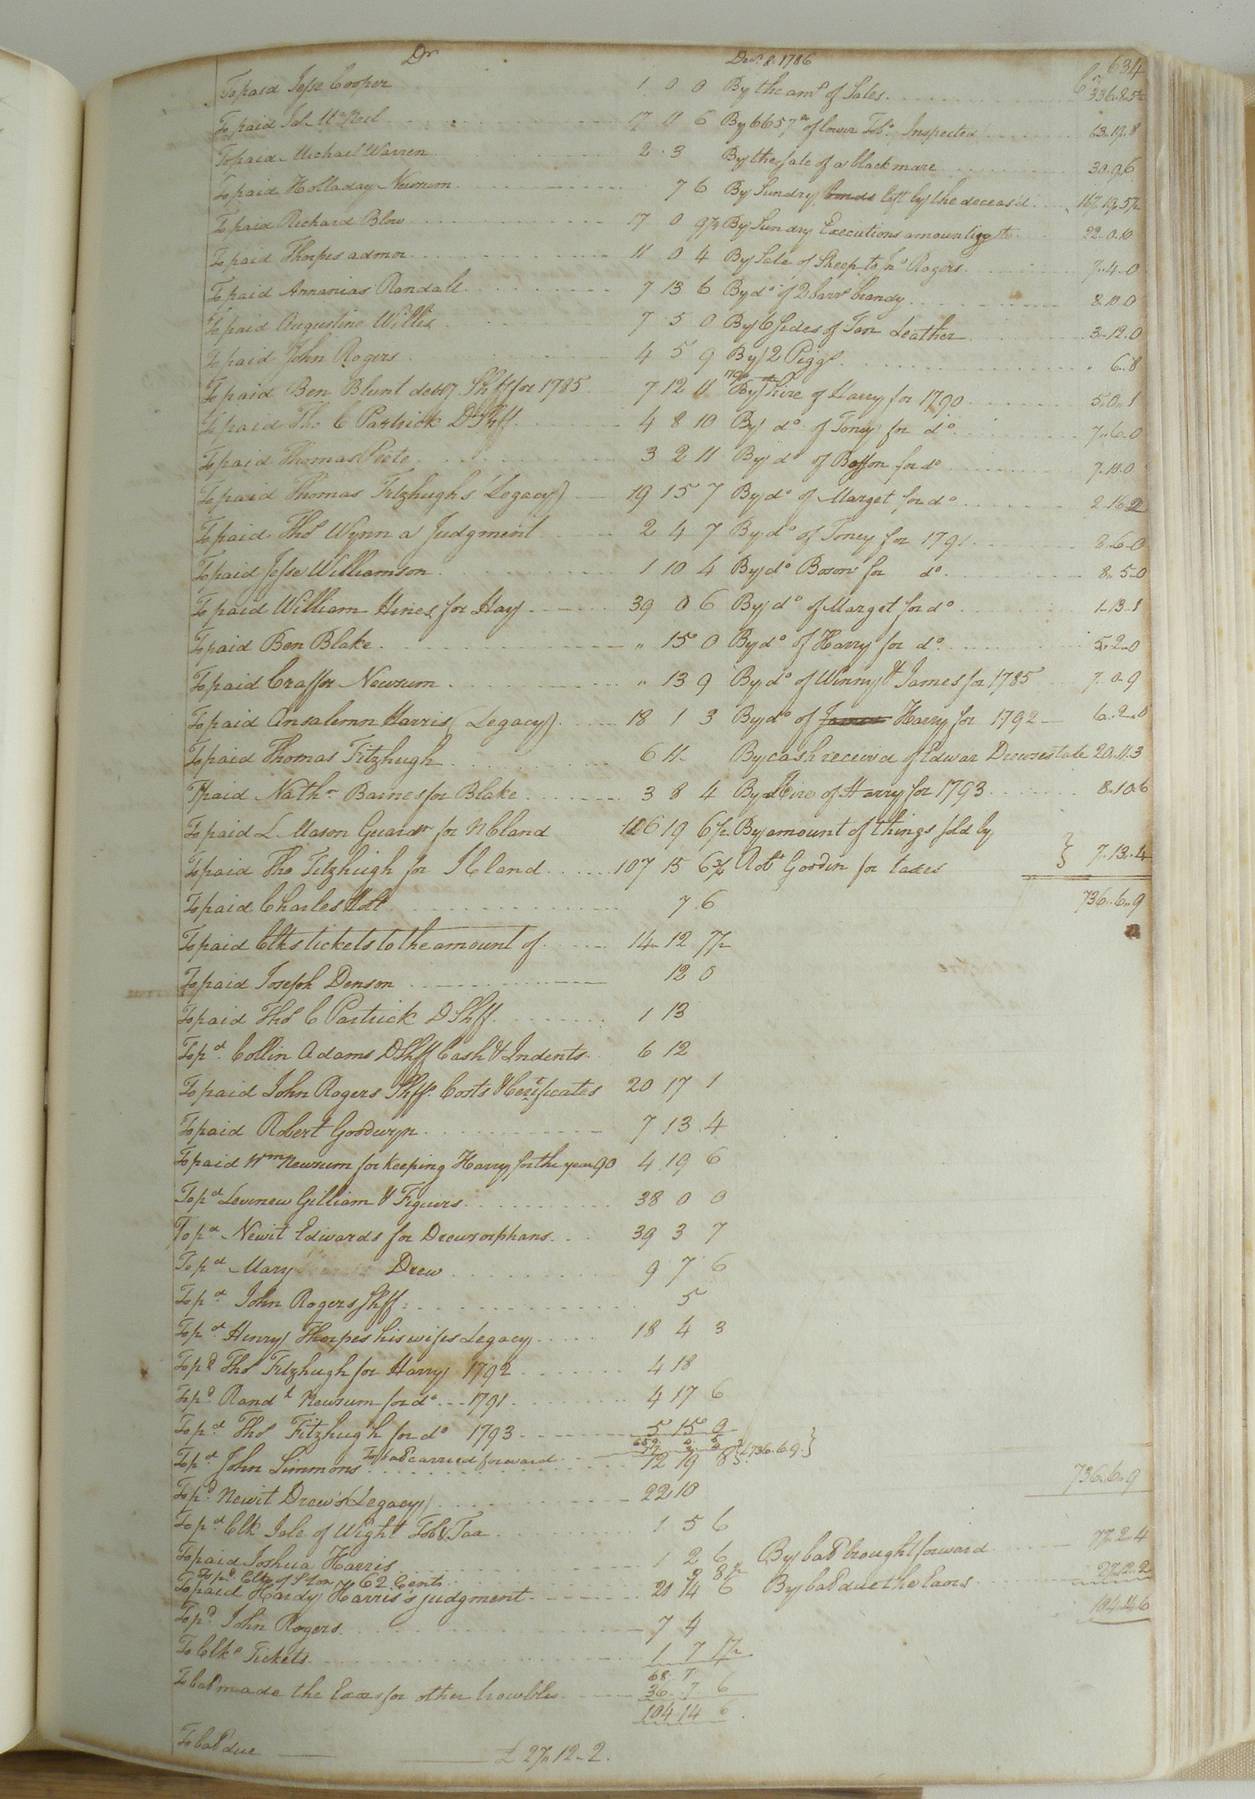 Dr Decr. 8. 1786 634
Cr
To paid Jesse Cooper 1 0 0 By the amt. of Sales 336.8.5½
To paid Jas. McNeil 17 11 6 By 6657 lb of lower Tobo. Inspected 63.19.8
To paid Michael Warren 2 .. 3 By the Sale of a black mare 30.9.6
To paid Holladay Newsum 7 6 By Sundry bonds left by the deceasd 167.19.5½
To paid Richard Blow 17 0 9¾ By Sundry Executions amounting to 22.0.10
To paid Thorpes admor 11 0 4 By Sale of Sheep to Jno. Rogers 7..4..0
To paid Annanias Randall 7 13 6 By do. of 2 barrs brandy 8.10.0
To paid Augustine Willis 7 5 0 By 6 Sides of Tan Leather 3..12.0
To paid John Rogers 4 5 9 By 2 Piggs " 6..8
To paid Ben Blunt debt Shff for 1785 7 12 11 By Hire of Harry for 1790 5.0.1
To paid Tho. C Partrick D Shff 4 8 10 By do. of Toney for do. 7..6..0
To paid Thomas Peete 3 2 11 By do of Boson for do 7.10.0
To paid Thomas Fitzhugh's Legacy 19 15 7 By do. of Marget for do 2.16.2
To paid Thos Wynn a Judgment 2 4 7 By do. of Toney for 1791 8..6..0
To paid Jesse Williamson 1 10 4 By do Boson for do. 8..5..0
To paid William Hines for Hay 39 0 6 By do. of Marget for do 1..13..1
To paid Ben Blake " 15 0 By do of Harry for do. 5..2..0
To paid Craffor Newsum " 13 9 By do. of Winny & James for 1785 7.0.9
To paid Ansalemn Harris Legacy 18 1 3 By do. of James Harry for 1792 6..2..0
To paid Thomas Fitzhugh 6 11.. By cash receivd of Edwar Drews estate 20.11.3
To paid Nathn Barnes for Blake 3 8 4 By Hire of Harry for 1793 8.10.6
To paid L. Mason Guardn for N bland 106 19 6½ By amount of things sold by
To paid Tho Fitzhugh for J bland 107 15 6¾ Robt Goodin for taxes } 7..13..4
To paid Charles Holt 7 6 736..6..9
To paid Clks tickets to the amount of 14 12 7½
To paid Joseph Denson 12 0
To paid Thos C Partrick D Shff 1 13
To pd. Collin Adams D Shff Cash & Indents 6 12
To paid John Rogers Shff. Costs & Certificates 20 17 1
To paid Robert Goodwyn 7 13 4
To paid Wm Newsum for keeping Harry for the year 90 4 19 6
To pd Gilliam & Figures 38 0 0
To pd Newit Edwards for Drews orphans 39 3 7
To pd Mary Drew 9 7 6
To pd John Rogers Shff. 5
To pd Henry Thorpes his wifes Legacy 18 4 3
To pd Thos Fitzhugh for Harry 1792 4 18
To pd Randl Newsum for do. 1791 4 17 6
To pd. Thos Fitzhugh for do 1793 5 15 9
To bal carried forward £736..6..9 }
To pd John Simmons 12 19 8
To pd Newit Drew's Legacy 22 10 736..6..9
To pd Clk Isle of Wight Tob. & Tax 1 5 6
To paid Joshua Harris 1 2 6 By bal brought forward 77..2..4
To pd. Clk of S ton 62 Cents 3 8½
To paid Hardy Harris's judgment 21 14 6 By bal due the Exors 27.12.2
104.14.6
To pd John Rogers 7 4
To Clks Tickets 1 7 1½
68. 7
To bal made the Exors for other troubles 36. 7 6
104 14 6
To bal due £ 27..12..2.